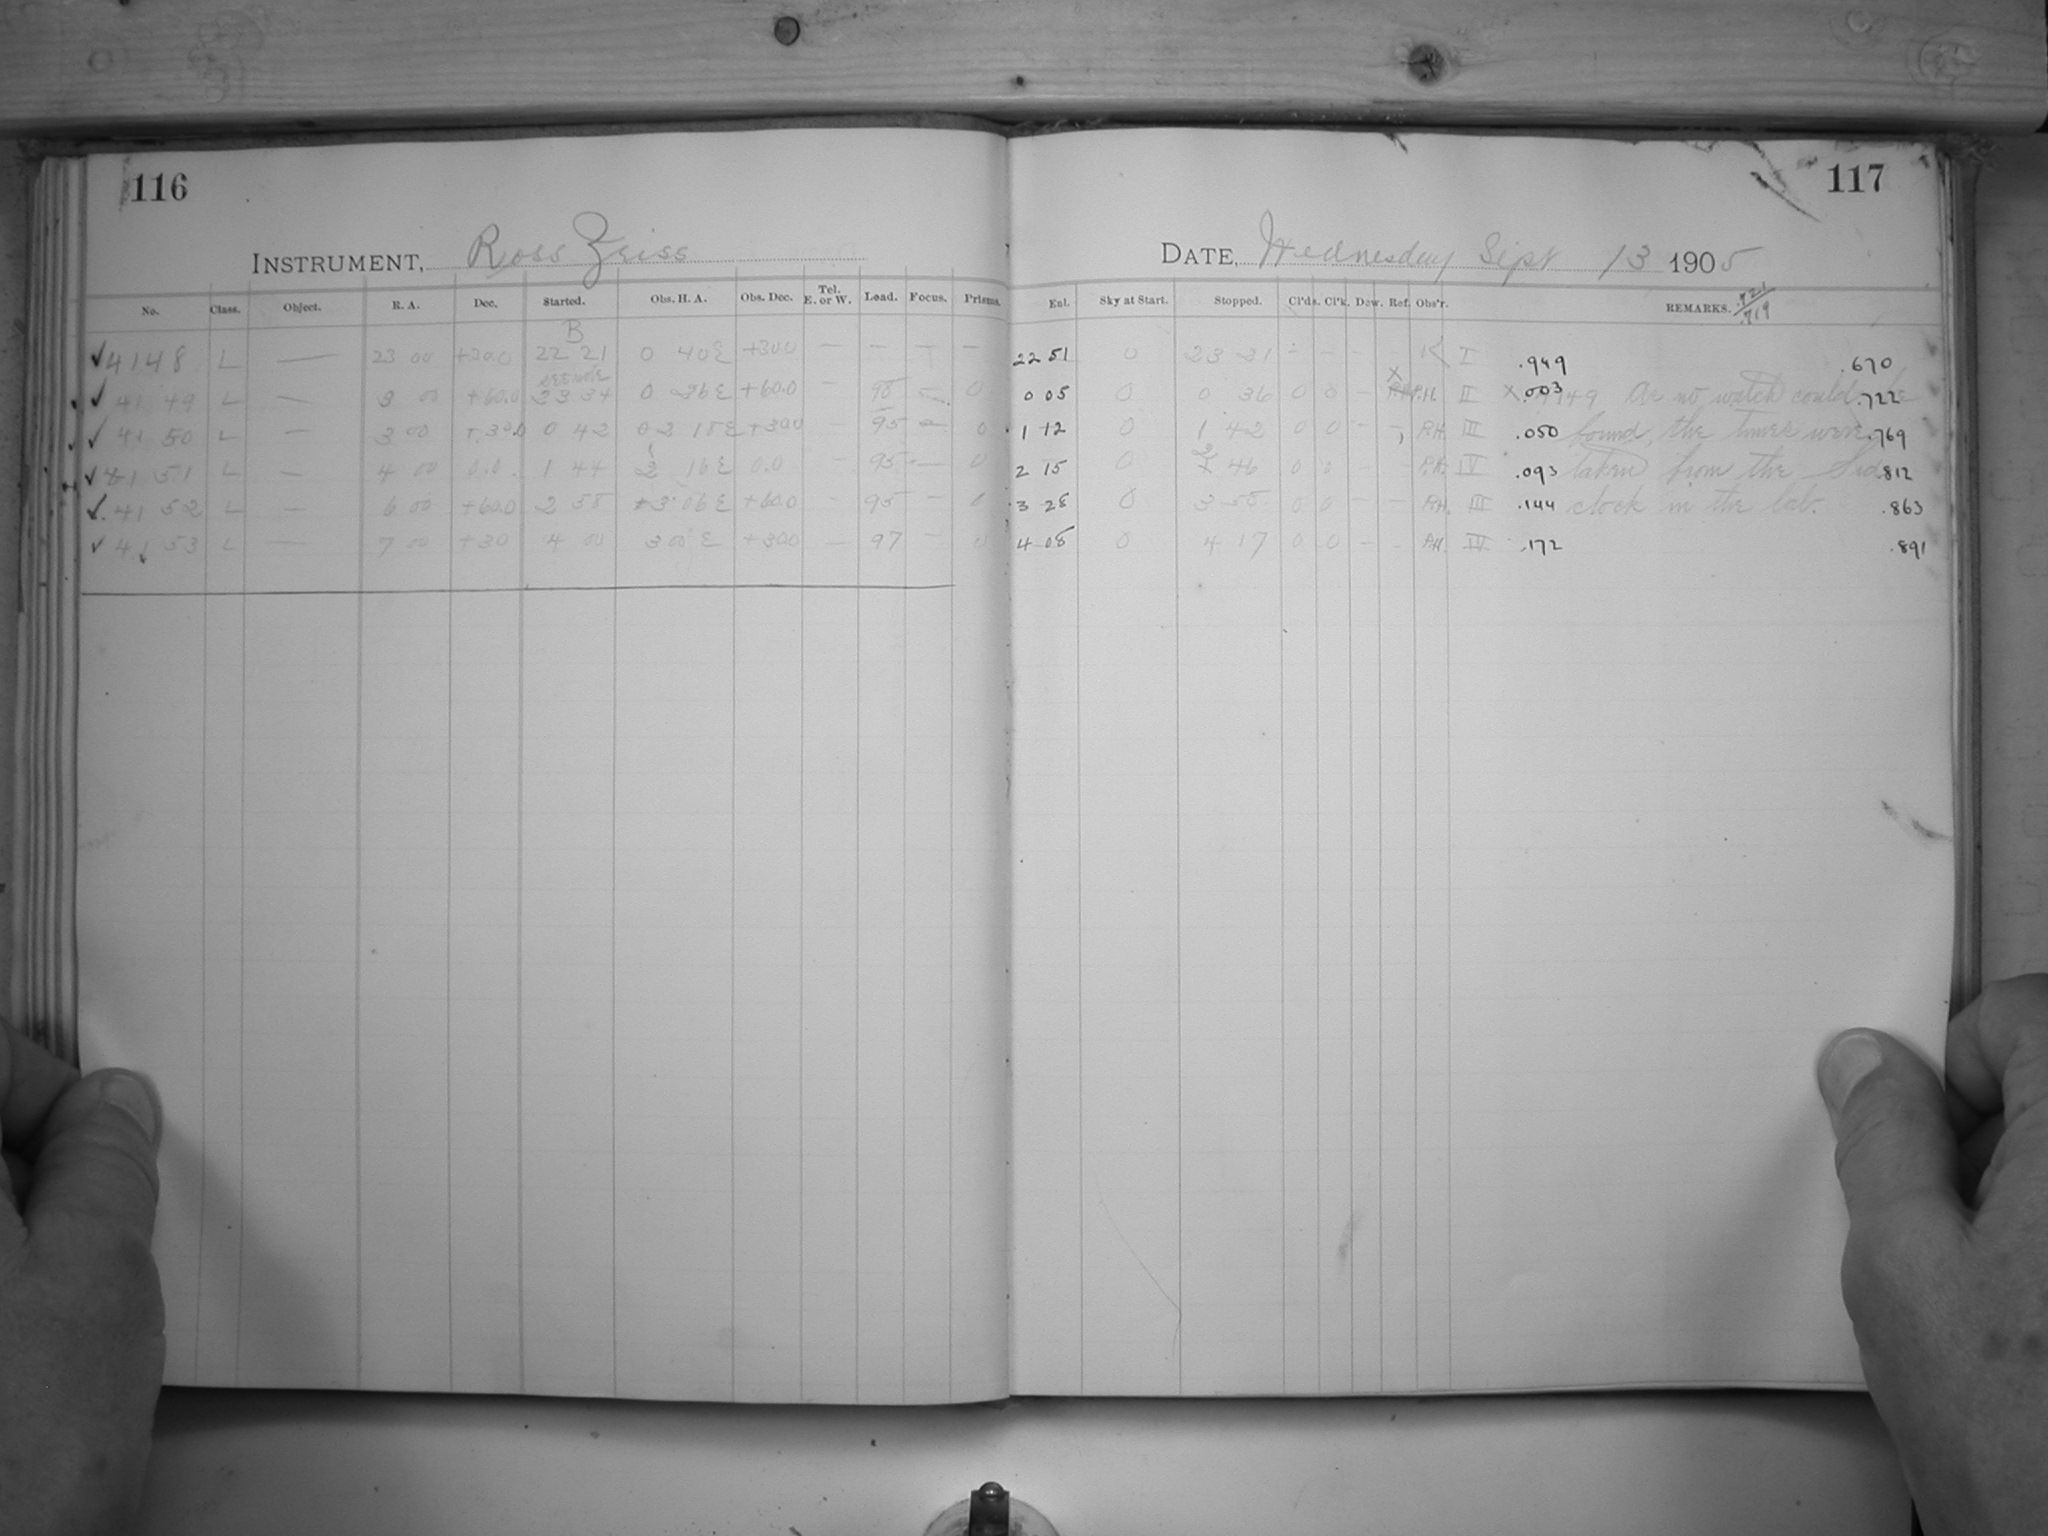 116
117
INSTRUMENT, Ross Zeiss
DATE, Wednesday Sept 13 1905
No. Class. Object. R. A. Dec. Started. Obs. H. A. Obs. Dec. Tel. E. or W. Load. Focus. Prisms. Ent. Sky at Start. Stopped. Cl'ds. Cl'k. Dew. Ref. Obs'r. REMARKS. .721/.719
B
✓ 4148 L — 23 00 +30.0 22 21 0 40 E +30.0 — — — — 22 51 0 23 21 - - - - K I .949 .670
see note
✓ 4149 L — 3 00 +60.0 23 34 0 36 E +60.0 - 95 — 0 0 05 0 0 36 0 0 - X R.H. II X .003 4149 As no watch could be .722
✓ 4150 L — 3 00 +30.0 0 42 2 18 E +30.0 95 — 0 1 12 0 1 42 0 0 - - R.H. III .050 found, the times were .769
✓ 4151 L — 4 00 0.0 1 44 2 16 E 0.0 - 95 — 0 2 15 0 2 46 0 0 R.H. IV .093 taken from the Sid. .812
✓ 4152 L — 6 00 +60.0 2 58 3 06 E +60.0 - 95 — 0 3 28 0 3 58 0 0 - - R.H. III .144 clock in the lab. .863
✓ 4153 L — 7 00 +30 4 00 3 00 E +30.0 — 97 - 0 4 08 0 4 17 0 0 - - R.H. IV .172 .891